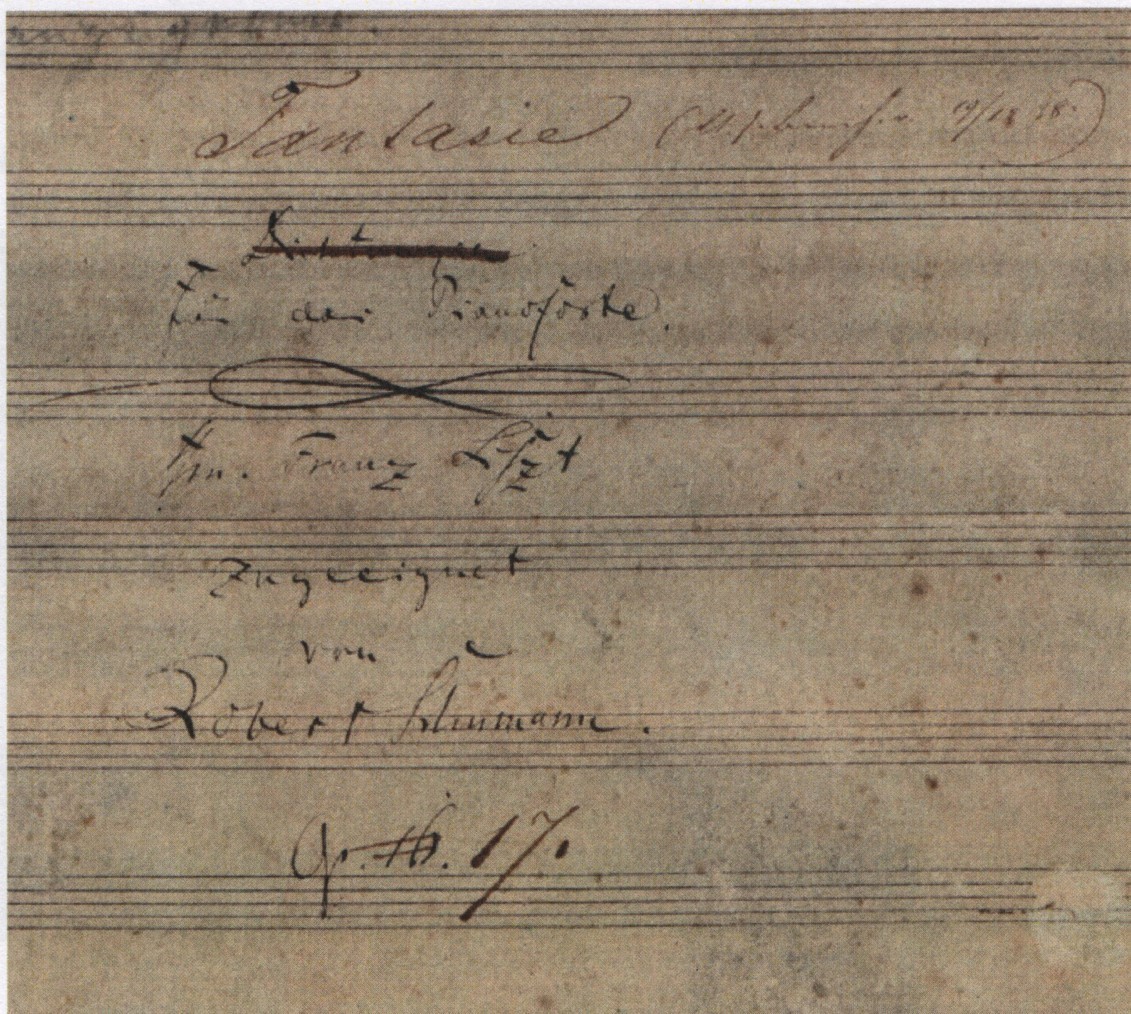 Fantasie (
Dichtungen
Für das Pianoforte.
Hrn. Franz Liszt
zugeeignet
von
Robert Schumann.
Op. 16. 17.